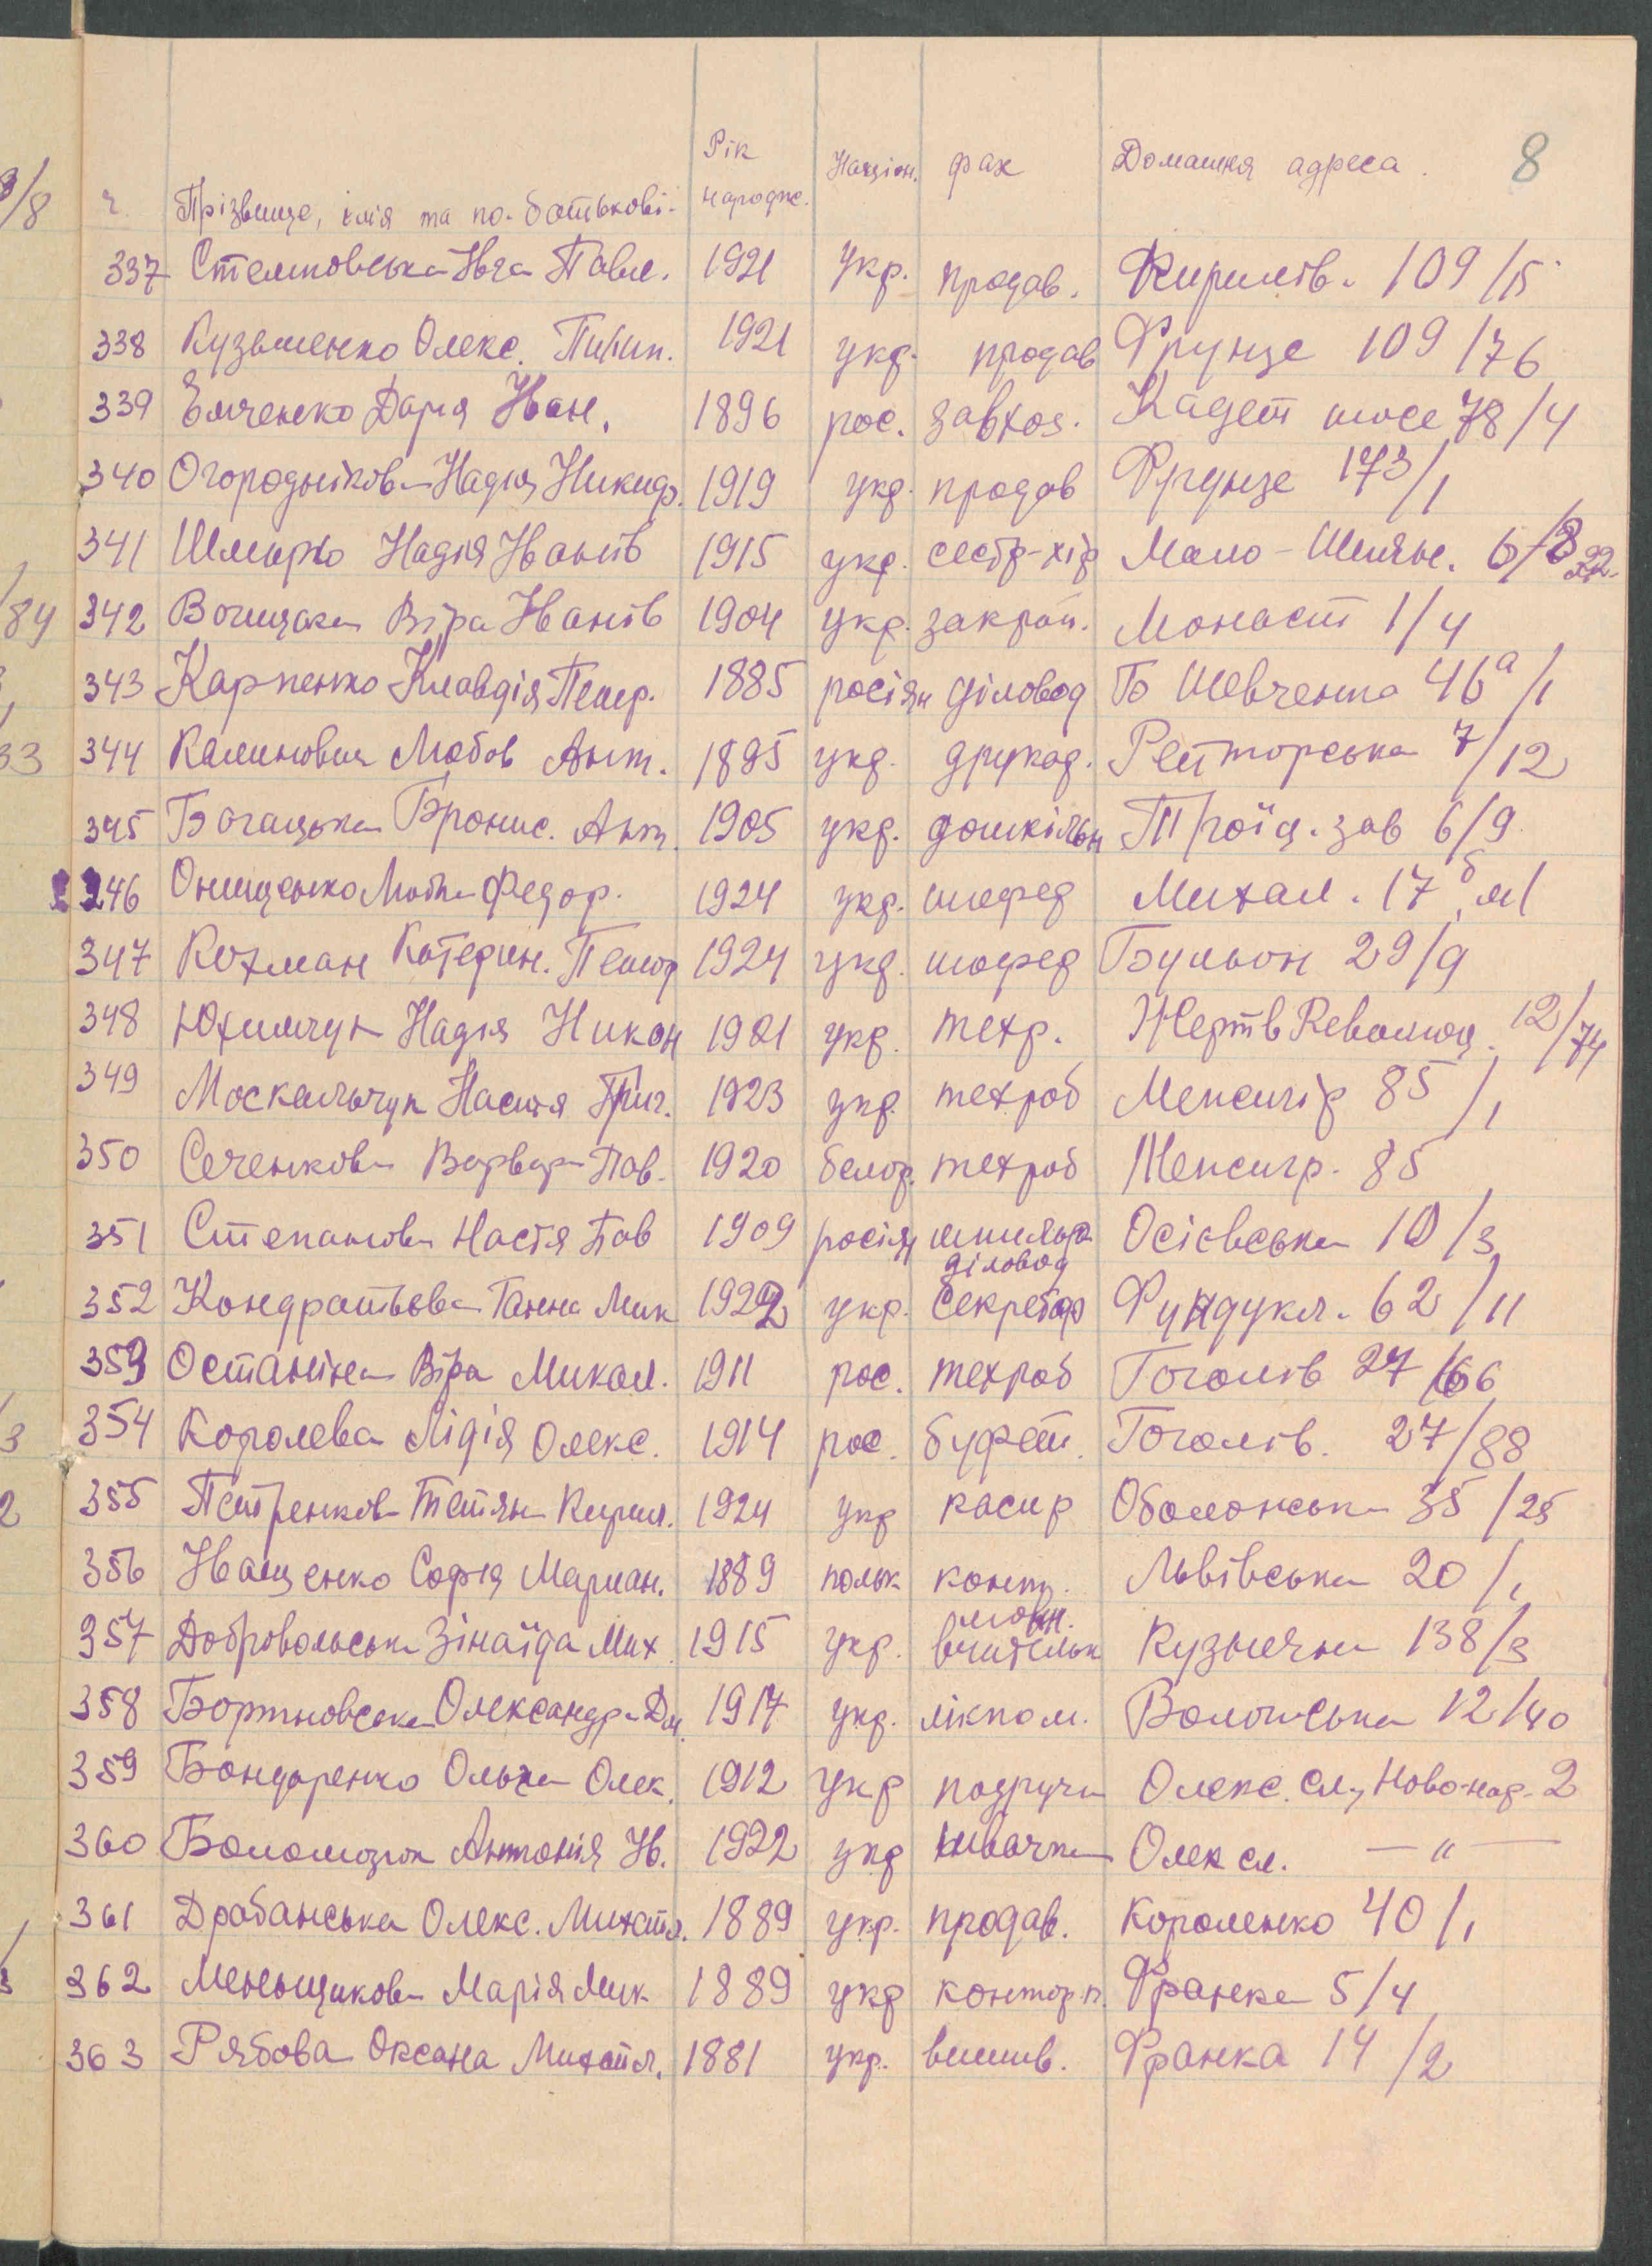 8
ч. Прізвище, імя та по-батькові Рік народже. Націон. фах Домашня адреса
337 Стемповська Яга Павл. 1921 укр. продав. Кирилів. 109/15
338 Кузьменко Олекс. Пилип. 1921 укр. продав Фрунзе 109/76
339 Емченко Дарія Іван. 1896 рос. завхоз. Кадет шосе 78/4
340 Огороднікова Надія Никиф. 1919 укр. продав Фрунзе 173/1
341 Шмирко Надія Іванів 1915 укр. сестр-хір Мало-Шиян. 6/8
342 Віра Іванів 1904 укр. закрой. Монаст 1/4
343 Карпенко Клавдія Петр. 1885 росіян діловод Б Шевченка 46а/1
344 Калинович Любов Ант. 1895 укр. друкар. Рейторська 7/12
345 Богацька Броніс. Ант. 1905 укр. дошкільн Троїц. зав 6/9
346 Онищенко Люба Федор. 1924 укр. шофер Михал. 17б
347 Кохман Катерин. Петор 1924 укр. шофер Бульон 29/9
348 Юхимчук Надія Никон 1921 укр. техр. Жертв Революц. 12/74
349 Москальчук Настя Григ. 1923 укр. техроб Межигір 85/1
350 Сеченкова Варвара Пав. 1920 белор. техроб Межигр. 85
351 Степанова Настя Пав 1909 росіян Осієвська 10/3
352 Кондратьєва Ганна Мик 1922 укр. діловод секретар Фундукл. 62/11
353 Останіна Віра Микол. 1911 рос. техроб Гоголів 27/66
354 Королева Лідія Олекс. 1914 рос. буфет. Гоголів. 27/88
355 Петренкова Тетяна Кирил. 1924 укр касир Оболонська 35/25
356 Іващенко Софія Мариан. 1889 польк контр. Львівська 20/1
357 Добровольська Зінаїда Мих 1915 укр. мовн. вчительк Кузнечна 138/3
358 Бортновська Олександра Дм. 1917 укр. лікпом. Волошська 12/40
359 Бондаренко Ольга Олек. 1912 укр подручн Олекс. сл, Ново-нар. 2
360 Антонія Ів. 1922 укр швачка Олек сл. — " —
361 Драбанська Олекс. Михайл. 1889 укр. продав. Короленко 40/1
362 Меньщикова Марія Мик 1889 укр контор.п. Франка 5/4
363 Рябова Оксана Михайл. 1881 укр. вишив. Франка 14/2